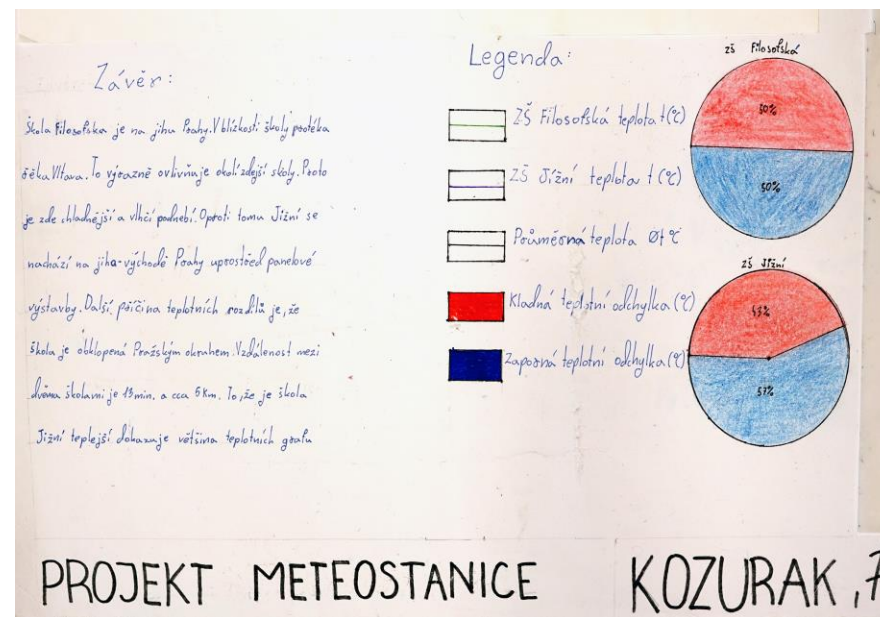 Závěr:
Škola Filosofska je na jihu Prahy. V blízkosti školy protéka
řéka Vltava. To výrazně ovlivňuje okolí zdejší školy. Proto
je zde chladnější a vlhčí podnebí. Oproti tomu Jižní se
nachází na jiho-východě Prahy uprostřed panelové
výstavby. Další příčina teplotních rozdílů je, že
škola je obklopená Pražským okruhem. Vzdálenost mezi
dvěma školami je 13 min. a cca 5 km. To, že je škola
Jižní teplejší dokazuje většina teplotních grafu
Legenda:
ZŠ Filosofská teplota t (°C)
ZŠ Jížní teplota t (°C)
Průměrná teplota Øt °C
Kladná teplotní odchylka (°C)
Zaporná teplotní odchylka (°C)
zš Filosofská
50%
50%
zš Jížní
43%
57%
PROJEKT METEOSTANICE
KOZURAK, 7